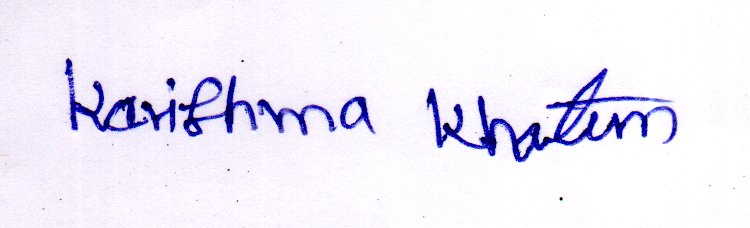 Karishma Khatun